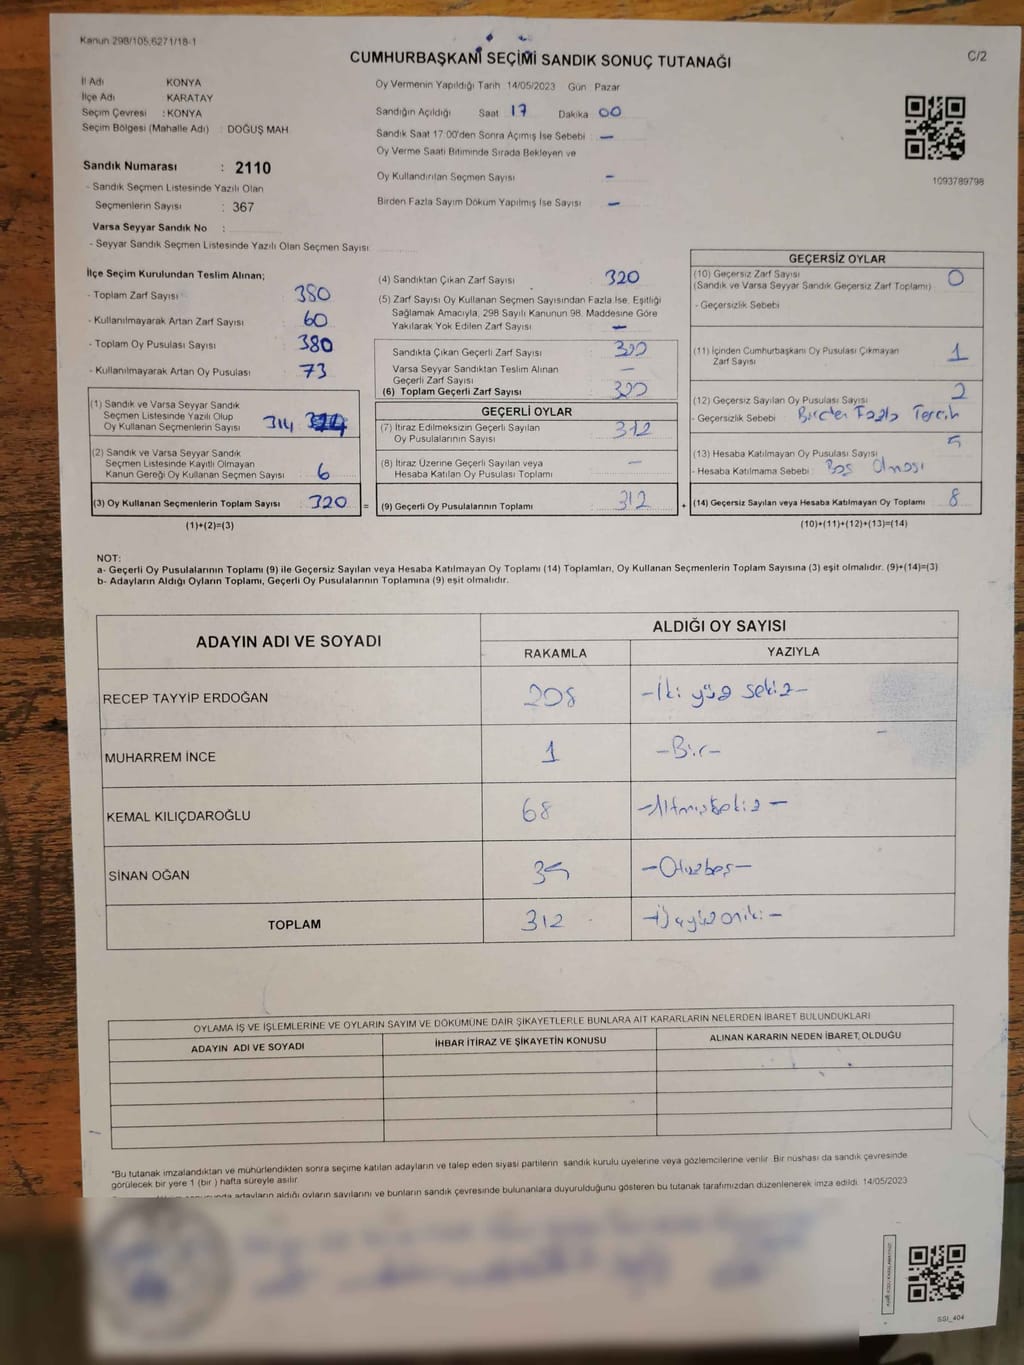 Kanun 298/105,6271/18-1
CUMHURBAŞKANI SEÇİMİ SANDIK SONUÇ TUTANAĞI
C/2
İl Adı KONYA
İlçe Adı KARATAY
Seçim Çevresi : KONYA
Seçim Bölgesi (Mahalle Adı) : DOĞUŞ MAH.
Sandık Numarası : 2110
- Sandık Seçmen Listesinde Yazılı Olan
Seçmenlerin Sayısı : 367
Varsa Seyyar Sandık No :
- Seyyar Sandık Seçmen Listesinde Yazılı Olan Seçmen Sayısı
Oy Vermenin Yapıldığı Tarih 14/05/2023 Gün Pazar
Sandığın Açıldığı Saat 17 Dakika 00
Sandık Saat 17:00'den Sonra Açılmış İse Sebebi : —
Oy Verme Saati Bitiminde Sırada Bekleyen ve
Oy Kullandırılan Seçmen Sayısı —
Birden Fazla Sayım Döküm Yapılmış İse Sayısı —
1093789798
İlçe Seçim Kurulundan Teslim Alınan;
- Toplam Zarf Sayısı 380
- Kullanılmayarak Artan Zarf Sayısı 60
- Toplam Oy Pusulası Sayısı 380
- Kullanılmayarak Artan Oy Pusulası 73
(1) Sandık ve Varsa Seyyar Sandık
Seçmen Listesinde Yazılı Olup
Oy Kullanan Seçmenlerin Sayısı 314
(2) Sandık ve Varsa Seyyar Sandık
Seçmen Listesinde Kayıtlı Olmayan
Kanun Gereği Oy Kullanan Seçmen Sayısı 6
(3) Oy Kullanan Seçmenlerin Toplam Sayısı 320
(1)+(2)=(3)
(4) Sandıktan Çıkan Zarf Sayısı 320
(5) Zarf Sayısı Oy Kullanan Seçmen Sayısından Fazla İse, Eşitliği
Sağlamak Amacıyla, 298 Sayılı Kanunun 98. Maddesine Göre
Yakılarak Yok Edilen Zarf Sayısı —
Sandıkta Çıkan Geçerli Zarf Sayısı 320
Varsa Seyyar Sandıktan Teslim Alınan
Geçerli Zarf Sayısı —
(6) Toplam Geçerli Zarf Sayısı 320
GEÇERLİ OYLAR
(7) İtiraz Edilmeksizin Geçerli Sayılan
Oy Pusulalarının Sayısı 312
(8) İtiraz Üzerine Geçerli Sayılan veya
Hesaba Katılan Oy Pusulası Toplamı —
= (9) Geçerli Oy Pusulalarının Toplamı 312
GEÇERSİZ OYLAR
(10) Geçersiz Zarf Sayısı 0
(Sandık ve Varsa Seyyar Sandık Geçersiz Zarf Toplamı)
- Geçersizlik Sebebi
(11) İçinden Cumhurbaşkanı Oy Pusulası Çıkmayan
Zarf Sayısı 1
(12) Geçersiz Sayılan Oy Pusulası Sayısı 2
- Geçersizlik Sebebi Birden Fazla Tercih
(13) Hesaba Katılmayan Oy Pusulası Sayısı 5
- Hesaba Katılmama Sebebi : Boş Olması
+ (14) Geçersiz Sayılan veya Hesaba Katılmayan Oy Toplamı 8
(10)+(11)+(12)+(13)=(14)
NOT:
a- Geçerli Oy Pusulalarının Toplamı (9) ile Geçersiz Sayılan veya Hesaba Katılmayan Oy Toplamı (14) Toplamları, Oy Kullanan Seçmenlerin Toplam Sayısına (3) eşit olmalıdır. (9)+(14)=(3)
b- Adayların Aldığı Oyların Toplamı, Geçerli Oy Pusulalarının Toplamına (9) eşit olmalıdır.
ADAYIN ADI VE SOYADI ALDIĞI OY SAYISI
RAKAMLA YAZIYLA
RECEP TAYYİP ERDOĞAN 208 -İki yüz sekiz-
MUHARREM İNCE 1 -Bir-
KEMAL KILIÇDAROĞLU 68 -Altmışsekiz-
SİNAN OĞAN 35 -Otuzbeş-
TOPLAM 312 -Üçyüzoniki-
OYLAMA İŞ VE İŞLEMLERİNE VE OYLARIN SAYIM VE DÖKÜMÜNE DAİR ŞİKAYETLERLE BUNLARA AİT KARARLARIN NELERDEN İBARET BULUNDUKLARI
ADAYIN ADI VE SOYADI İHBAR İTİRAZ VE ŞİKAYETİN KONUSU ALINAN KARARIN NEDEN İBARET OLDUĞU
*Bu tutanak imzalandıktan ve mühürlendikten sonra seçime katılan adayların ve talep eden siyasi partilerin sandık kurulu üyelerine veya gözlemcilerine verilir. Bir nüshası da sandık çevresinde
görülecek bir yere 1 (bir ) hafta süreyle asılır.
adayların aldığı oyların sayılarını ve bunların sandık çevresinde bulunanlara duyurulduğunu gösteren bu tutanak tarafımızdan düzenlenerek imza edildi. 14/05/2023
SSI_404